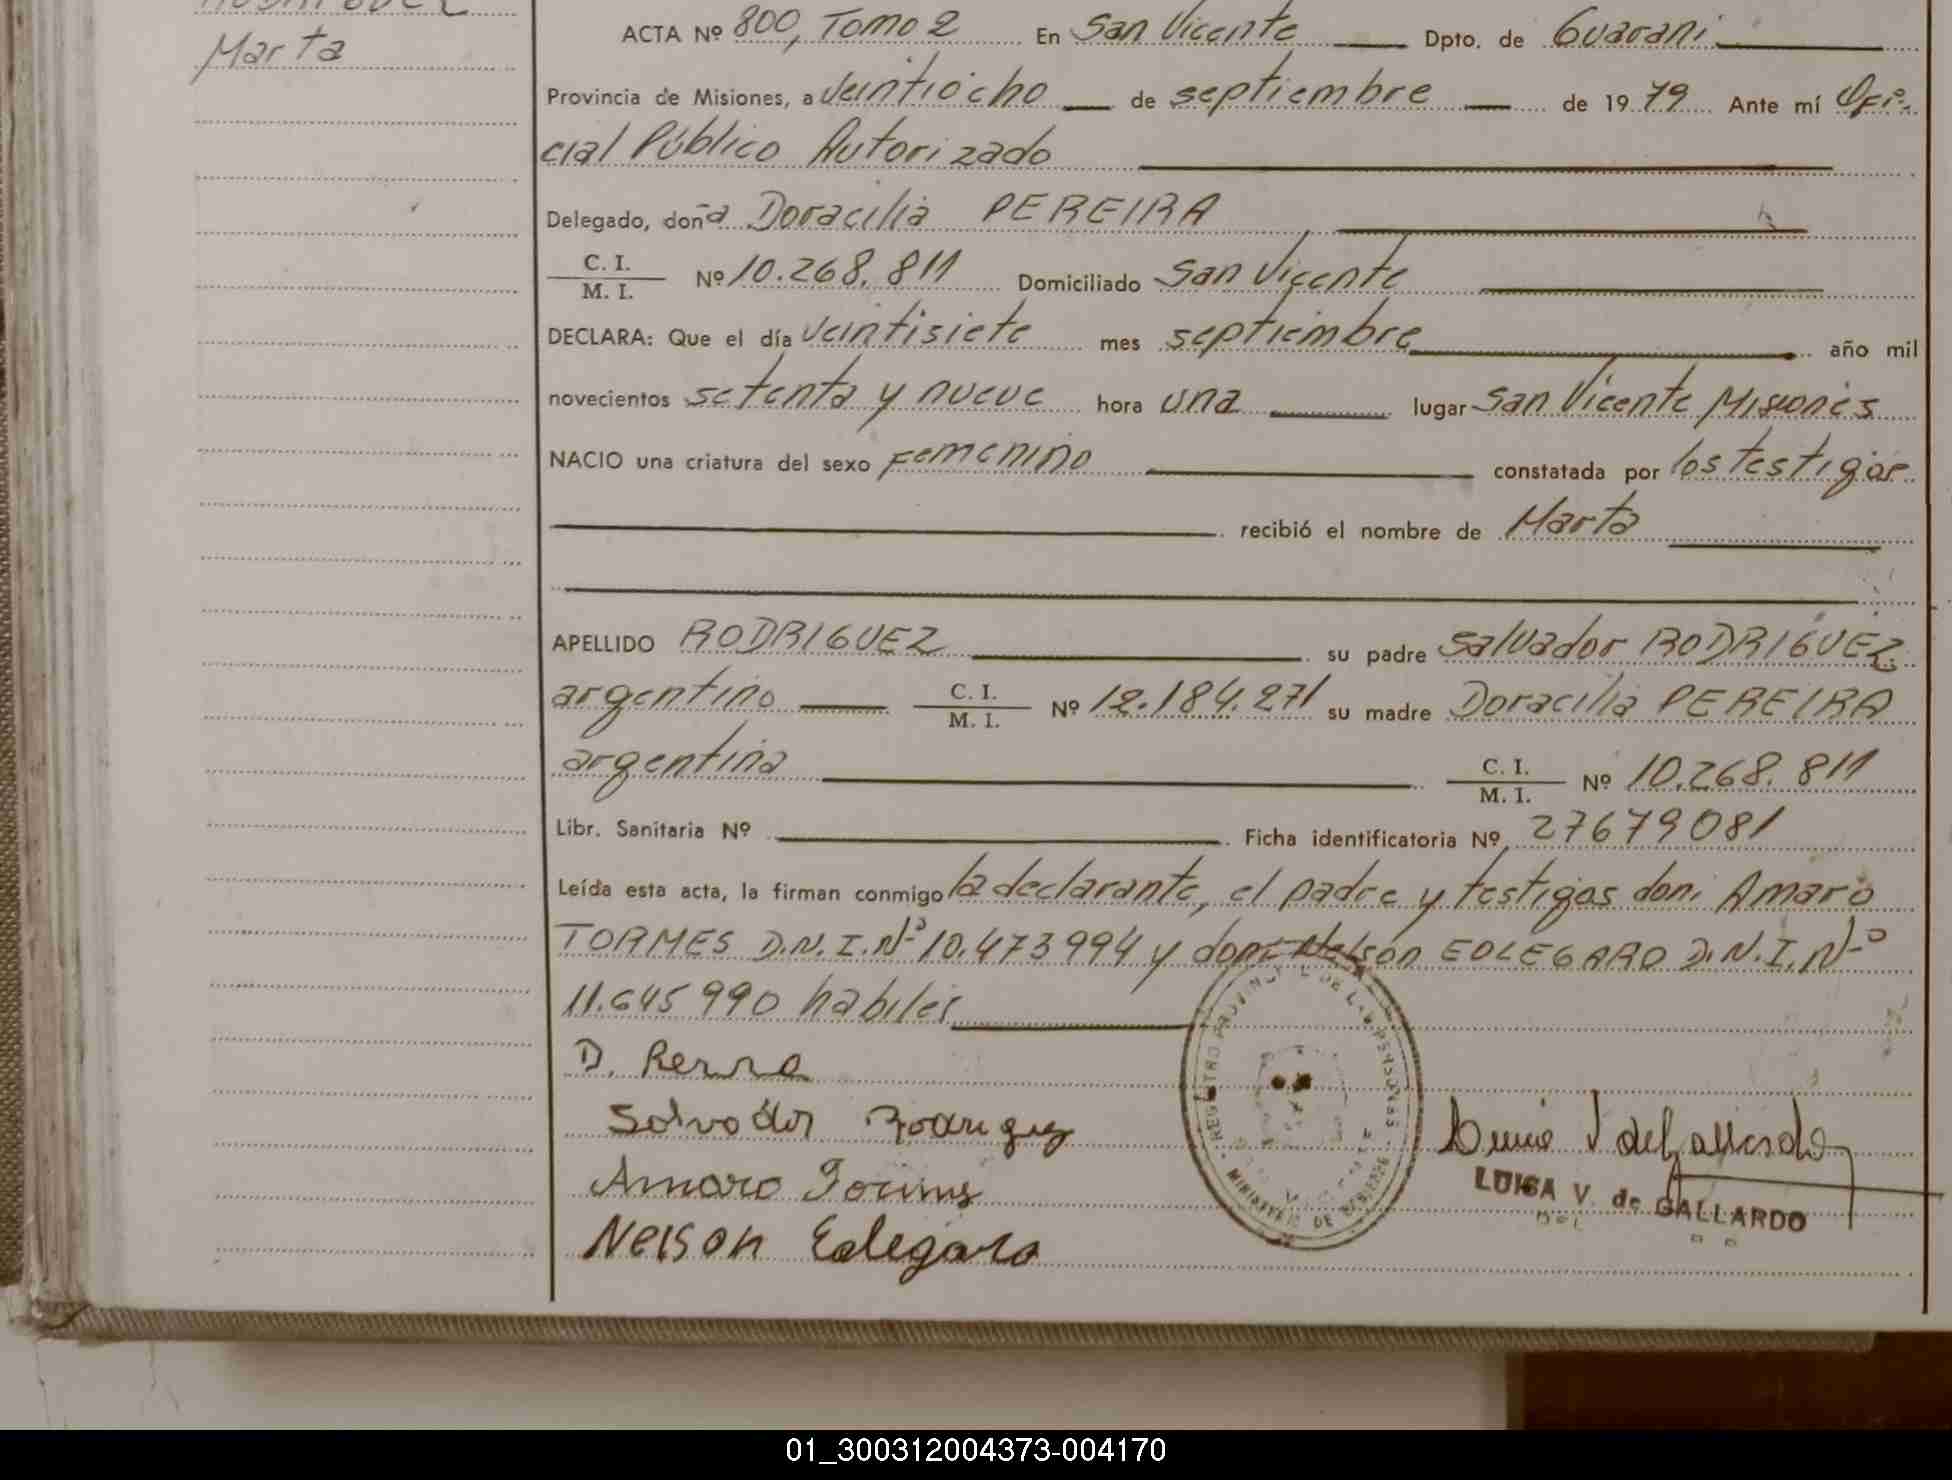 RODRIGUEZ
Marta
ACTA Nº 800, Tomo 2 En San Vicente Dpto. de Guaraní
Provincia de Misiones, a veintiocho de septiembre de 1979 Ante mí Ofi-
cial Público Autorizado
Delegado, doña Doracilia PEREIRA
C. I.
M. I.
Nº 10.268.811 Domiciliado San Vicente
DECLARA: Que el día veintisiete mes septiembre año mil
novecientos setenta y nueve hora una lugar San Vicente Misiones
NACIO una criatura del sexo Femenino constatada por los testigos
recibió el nombre de Marta
APELLIDO RODRIGUEZ su padre Salvador RODRIGUEZ
argentino C. I. M. I. Nº 12.184.271 su madre Doracilia PEREIRA
argentina C. I. M. I. Nº 10.268.811
Libr. Sanitaria Nº Ficha identificatoria Nº 27679081
Leída esta acta, la firman conmigo la declarante, el padre y testigos don: Amaro
TORMES D.N.I.Nº 10.473994 y don: Nelson EDLEGARO D.N.I.Nº
11.645990 habiles
D. Rerra
Salvador Rodriguez
Amaro Tormes
Nelson Edlegaro
REGISTRO PROVINCIAL DE LAS PERSONAS
MINISTERIO DE
LUISA V. de GALLARDO
01_300312004373-004170